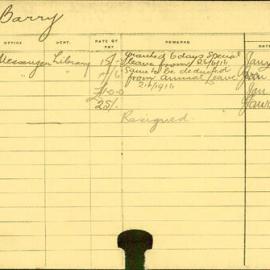 Barry
OFFICE DEPT. RATE OF PAY REMARKS DATE
Messenger Library 15/- Granted 6 days Special
leave from 26/6/16
17/6 Same to be deducted
from Annual Leave
21/6/1916
£1-0-0
25/-
Resigned